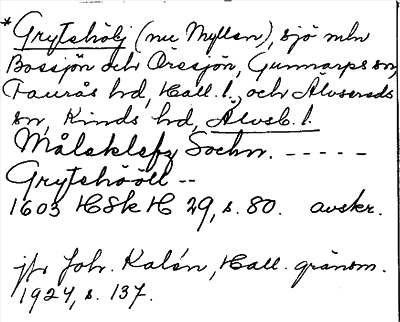 *Grytshölj (nu Myllsn), sjö mln
Bossjön och Öresjön, Gunnarps sn,
Faurås hd, Hall. l. och Älvsereds
sn, Kinds hd, Älvsb. l.
Målsklefz Sochn. - - - - -
Grytshööll --
1603 HSkH 29, s. 80. avskr.
jfr Joh. Kalén, Hall. gränsm.
1924, s. 137.